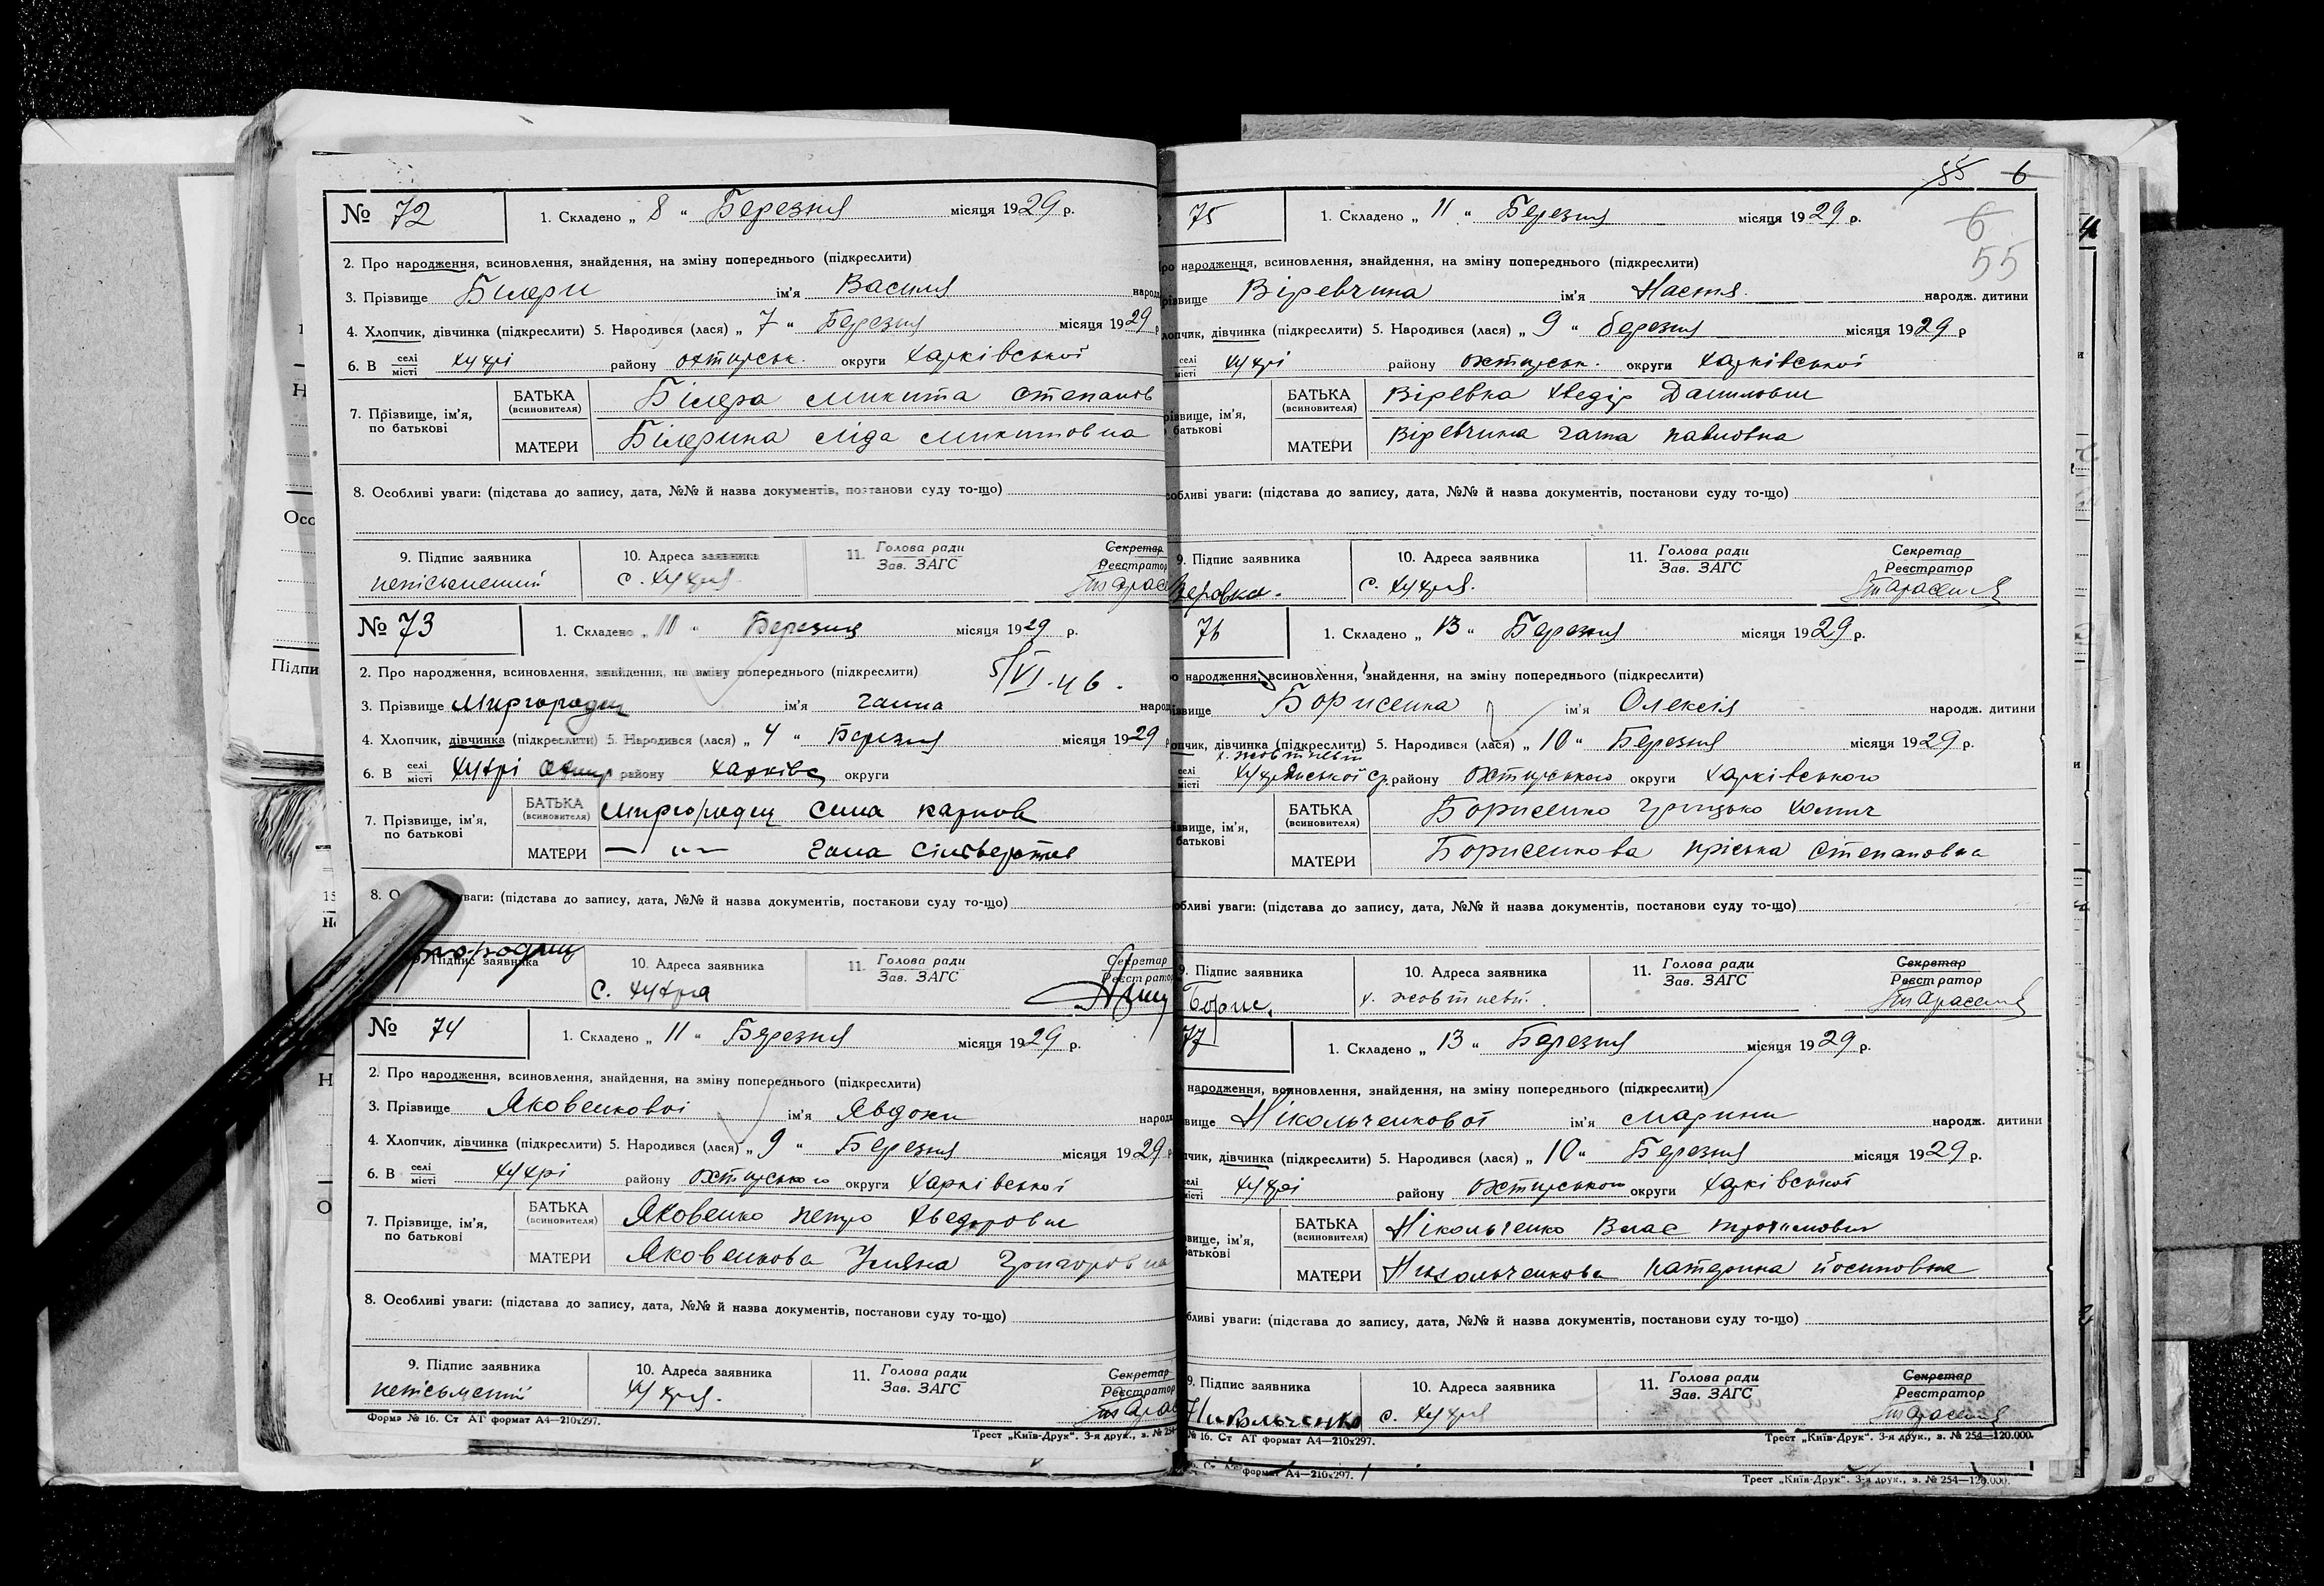 № 72
1. Складено „ 8 “ Березня місяця 1929 р.
2. Про народження, всиновлення, знайдення, на зміну попереднього (підкреслити)
3. Прізвище Білери ім'я Василя народ
4. Хлопчик, дівчинка (підкреслити) 5. Народився (лася) „ 7 “ Березня місяця 1929 р
6. В селі місті Хухрі району Охтирськ. округи Харківської
7. Прізвище, ім'я, по батькові
БАТЬКА (всиновителя) Білера Микита Степанов
МАТЕРИ Білерина Ліда Микитовна
8. Особливі уваги: (підстава до запису, дата, №№ й назва документів, постанови суду то-що)
9. Підпис заявника неписьменний
10. Адреса заявника с. Хухря
11. Голова ради Зав. ЗАГС
Секретар Реєстратор
№ 73
1. Складено „ 11 “ Березня місяця 1929 р.
2. Про народження, всиновлення, знайдення, на зміну попереднього (підкреслити)
5/VI-46.
3. Прізвище Миргородец ім'я Ганна народ
4. Хлопчик, дівчинка (підкреслити) 5. Народився (лася) „ 4 “ Березня місяця 1929 р
6. В селі місті Хухрі Охтир району Харківс округи
7. Прізвище, ім'я, по батькові
БАТЬКА (всиновителя) Миргородец Сила Карпов
МАТЕРИ — „ — Гана
8. О уваги: (підстава до запису, дата, №№ й назва документів, постанови суду то-що)
Підпис заявника
10. Адреса заявника с. Хухра
11. Голова ради Зав. ЗАГС
Секретар Реєстратор
№ 74
1. Складено „ 11 “ Березня місяця 1929 р.
2. Про народження, всиновлення, знайдення, на зміну попереднього (підкреслити)
3. Прізвище Яковенкової ім'я Явдохи народ
4. Хлопчик, дівчинка (підкреслити) 5. Народився (лася) „ 9 “ Березня місяця 1929 р
6. В селі місті Хухрі району Охтирського округи Харківської
7. Прізвище, ім'я, по батькові
БАТЬКА (всиновителя) Яковенко Петро Хведорович
МАТЕРИ Яковенкова Уляна Григоровна
8. Особливі уваги: (підстава до запису, дата, №№ й назва документів, постанови суду то-що)
9. Підпис заявника неписьмений
10. Адреса заявника Хухря.
11. Голова ради Зав. ЗАГС
Секретар Реєстратор
Форма № 16. Ст АТ формат А4—210х297.
Трест „Київ-Друк“. 3-я друк., з. № 254
55 6
6
55
75
1. Складено „ 11 “ Березня місяця 1929 р.
ро народження, всиновлення, знайдення, на зміну попереднього (підкреслити)
різвище Віревчина ім'я Настя народж. дитини
лопчик, дівчинка (підкреслити) 5. Народився (лася) „ 9 “ березня місяця 1929 р
селі місті Хухрі району Охтирськ. округи Харківської
різвище, ім'я, батькові
БАТЬКА (всиновителя) Віревка Хведір Данилович
МАТЕРИ Віревчина Гата Павловна
собливі уваги: (підстава до запису, дата, №№ й назва документів, постанови суду то-що)
9. Підпис заявника Веровка.
10. Адреса заявника с. Хухря.
11. Голова ради Зав. ЗАГС
Секретар Реєстратор
76
1. Складено „ 13 “ Березня місяця 1929 р.
о народження, всиновлення, знайдення, на зміну попереднього (підкреслити)
ізвище Борисенка ім'я Олексія народж. дитини
опчик, дівчинка (підкреслити) 5. Народився (лася) „ 10 “ Березня місяця 1929 р.
х. Жовтневй
селі місті Хухрянської ср. району Охтирського округи Харківського
ізвище, ім'я, батькові
БАТЬКА (всиновителя) Борисенко Грицько Хомич
МАТЕРИ Борисенкова Пріська Степановна
обливі уваги: (підстава до запису, дата, №№ й назва документів, постанови суду то-що)
9. Підпис заявника Борис.
10. Адреса заявника х. Жовтневй.
11. Голова ради Зав. ЗАГС
Секретар Реєстратор
77
1. Складено „ 13 “ Березня місяця 1929 р.
народження, всиновлення, знайдення, на зміну попереднього (підкреслити)
звище Нікольченкової ім'я Марини народж. дитини
пчик, дівчинка (підкреслити) 5. Народився (лася) „ 10 “ Березня місяця 1929 р.
селі місті Хухрі району Охтирського округи Харківської
звище, ім'я, батькові
БАТЬКА (всиновителя) Нікольченко Влас Трохимович
МАТЕРИ Никольченкова Катерина Йосиповна
бливі уваги: (підстава до запису, дата, №№ й назва документів, постанови суду то-що)
9. Підпис заявника Никольченко
10. Адреса заявника с. Хухря
11. Голова ради Зав. ЗАГС
Секретар Реєстратор
№ 16. Ст АТ формат А4—210х297.
Трест „Київ-Друк“. 3-я друк., з. № 254—120.000.
формат А4—210х297.
Трест „Київ-Друк“. 3-я друк., з. № 254—120.000.